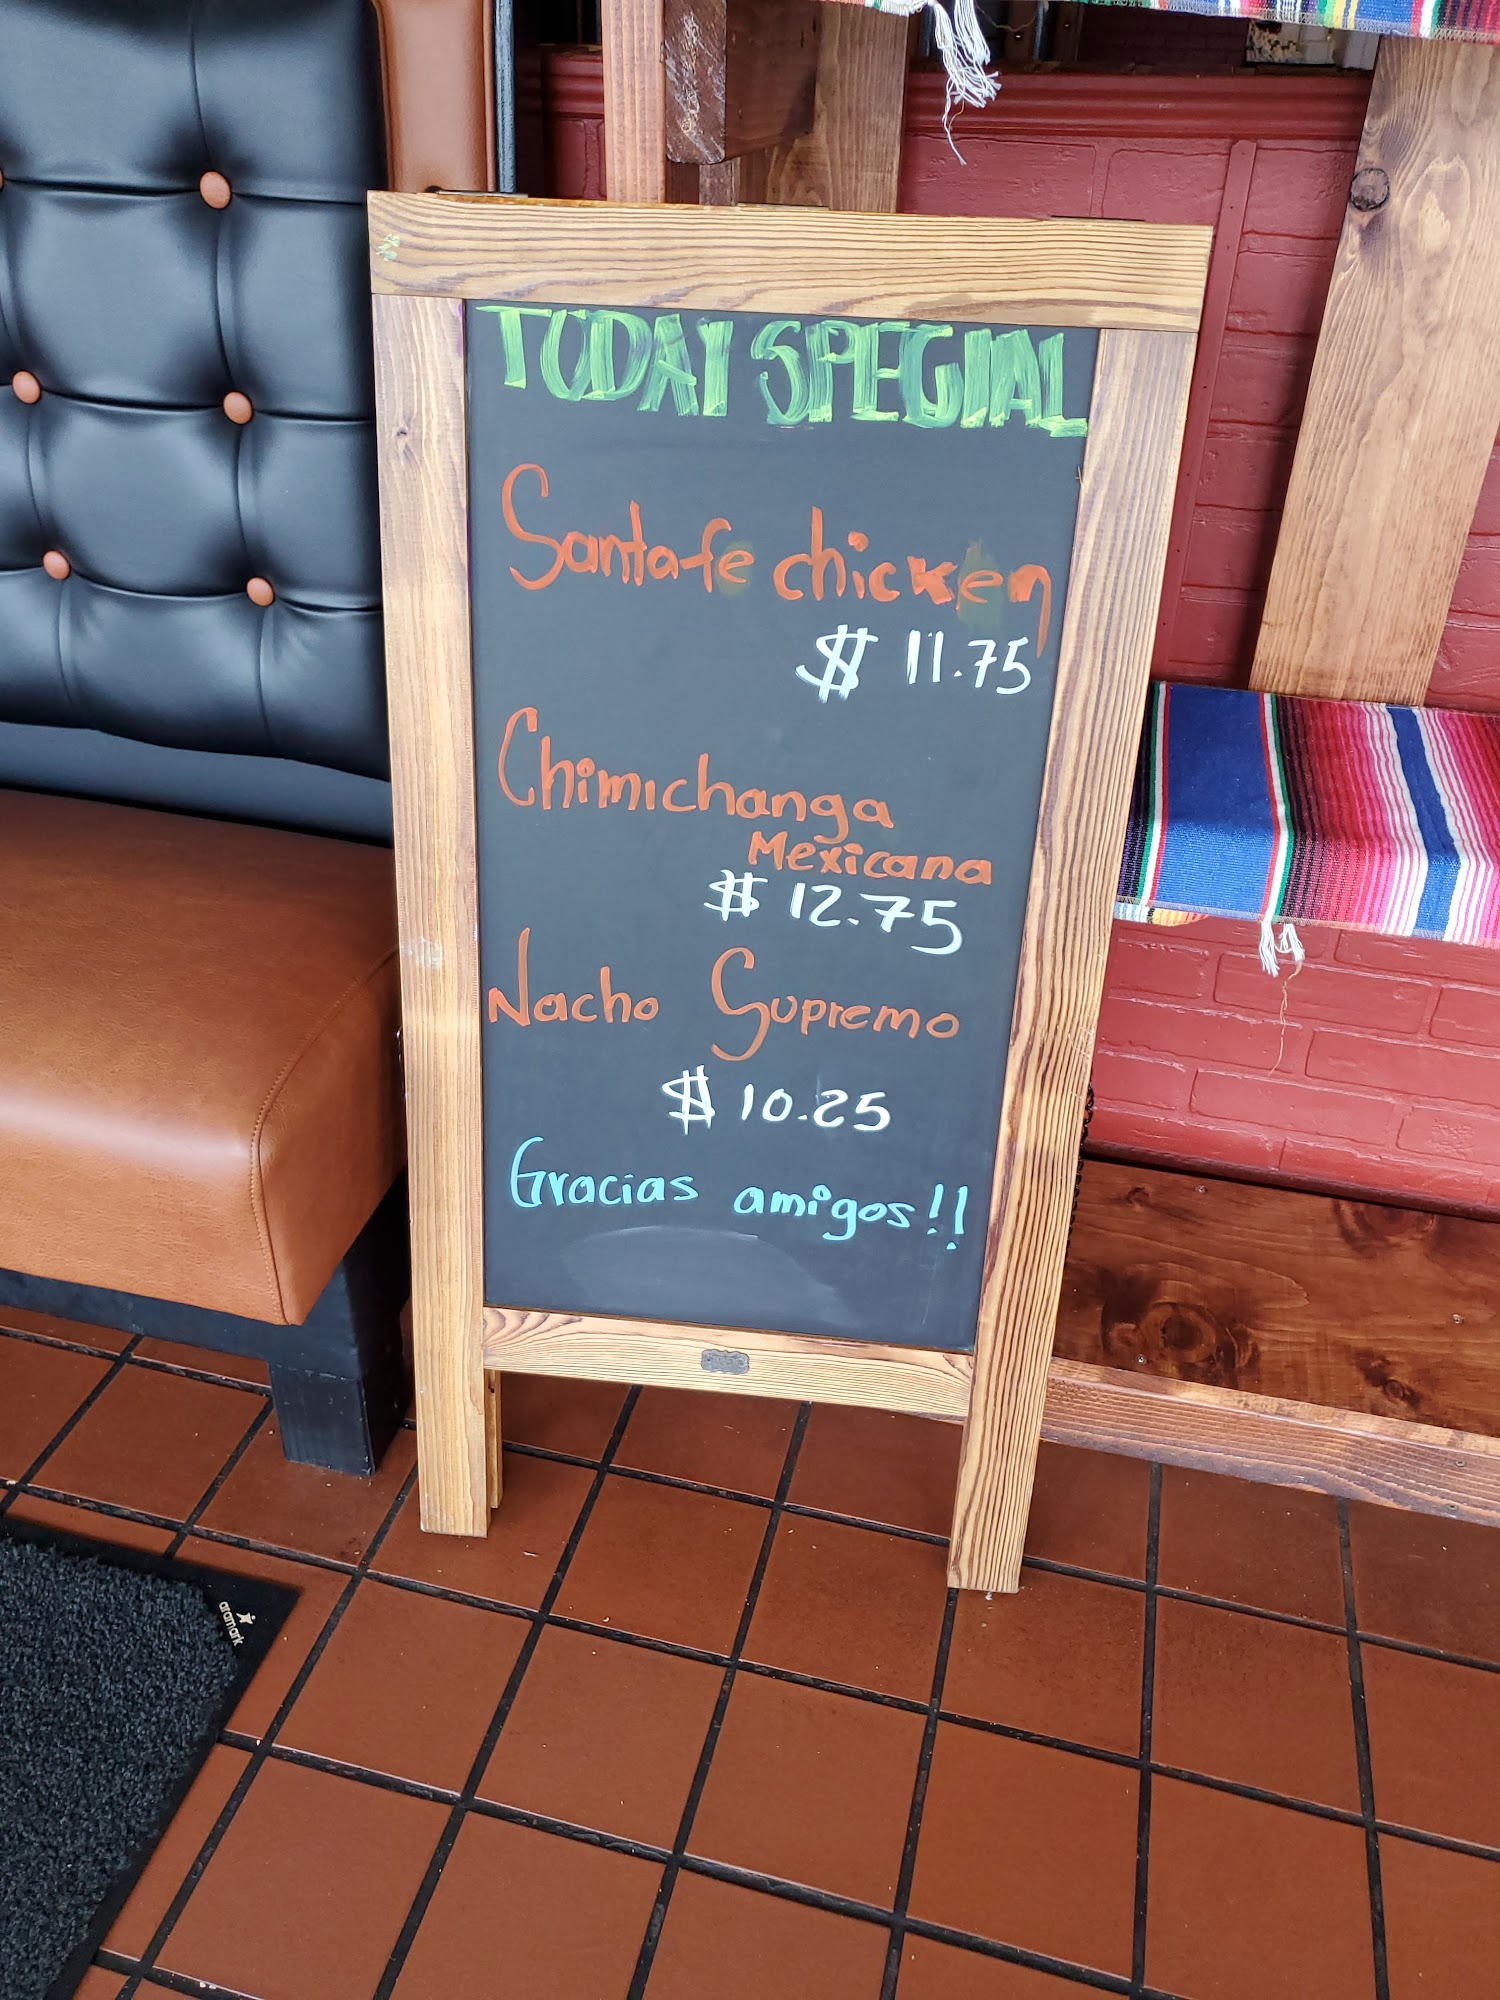 TODAY SPECIAL
Santafe chicken
$ 11.75
Chimichanga
Mexicana
$ 12.75
Nacho Supremo
$ 10.25
Gracias amigos!!
aramark